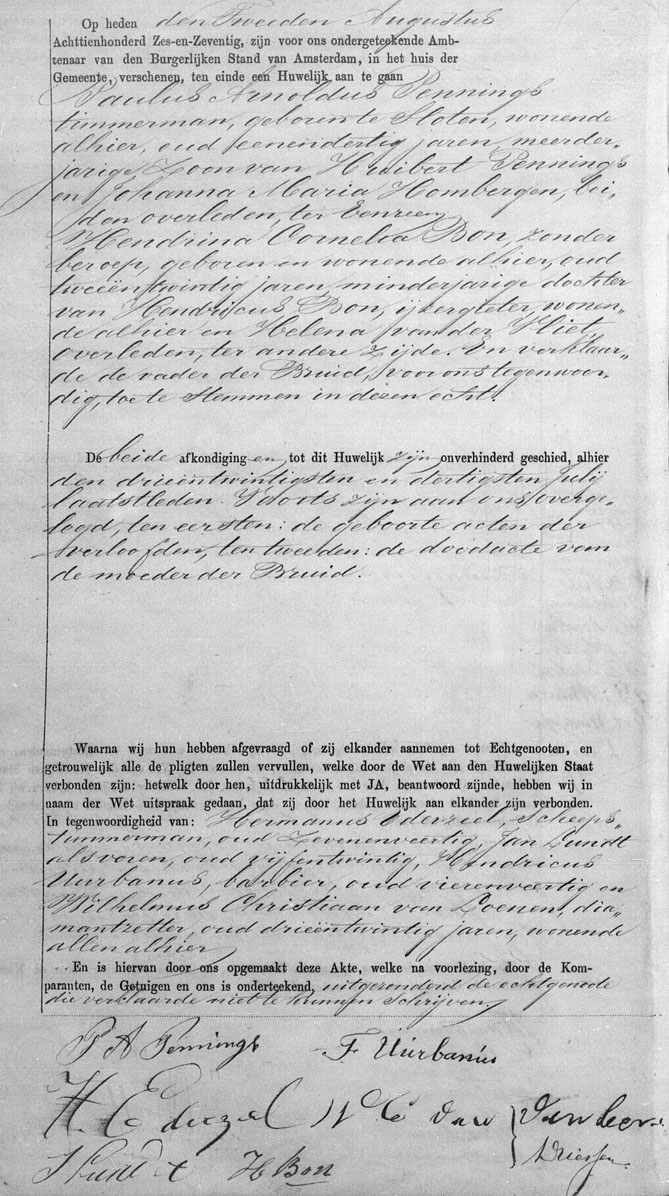 Op heden den Tweeden Augustus
Achttienhonderd Zes-en-Zeventig, zijn voor ons ondergeteekende Amb-
tenaar van den Burgerlijken Stand van Amsterdam, in het huis der
Gemeente, verschenen, ten einde een Huwelijk aan te gaan
Paulus Arnoldus Pennings
timmerman, geboren te Sloten, wonende
alhier, oud eenendertig jaren, meerder-
jarige Zoon van Huibert Pennings
en Johanna Maria Hombergen, bei-
den overleden, ter Eenre en
Hendrina Cornelia Bon, zonder
beroep, geboren en wonende alhier, oud
tweeëntwintig jaren, minderjarige dochter
van Hendricus Bon, ijzergieter, wonen-
de alhier en Helena van der Vliet,
overleden, ter andere Zijde. En verklaar-
de de vader der Bruid, voor ons tegenwoor-
dig, toe te stemmen in dezen echt.
De beide afkondiging en tot dit Huwelijk zijn onverhinderd geschied, alhier
den drieëntwintigsten en dertigsten Julij
laatstleden. Voorts zijn aan ons overge-
legd, ten eersten: de geboorte acten der
verloofden, ten tweeden: de doodacte van
de moeder der Bruid.
Waarna wij hun hebben afgevraagd of zij elkander aannemen tot Echtgenooten, en
getrouwelijk alle de pligten zullen vervullen, welke door de Wet aan den Huwelijken Staat
verbonden zijn: hetwelk door hen, uitdrukkelijk met JA, beantwoord zijnde, hebben wij in
naam der Wet uitspraak gedaan, dat zij door het Huwelijk aan elkander zijn verbonden.
In tegenwoordigheid van: Hermanus Ederzeel, Scheeps-
timmerman, oud Zevenenveertig, Jan Lundt
als voren, oud vijfentwintig, Hendricus
Uurbanus, barbier, oud vierenveertig en
Wilhelmus Christiaan van Loenen, dia-
mantzetter, oud drieëntwintig jaren, wonende
allen alhier
En is hiervan door ons opgemaakt deze Akte, welke na voorlezing, door de Kom-
paranten, de Getuigen en ons is onderteekend, uitgezonderd de echtgenoote
die verklaarde niet te kunnen schrijven.
P A Pennings F Uurbanus
H. Ederzeel W C van
H Bon